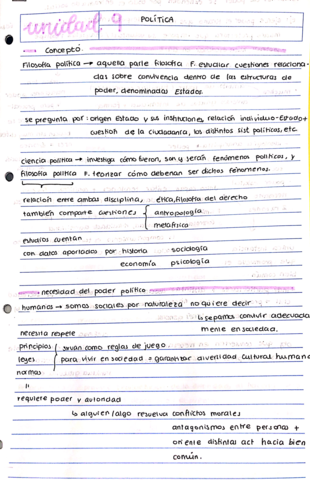 unidad 9
POLÍTICA
Concepto
Filosofía política → aquella parte filosofía F. estudiar cuestiones relaciona-
das sobre convivencia dentro de las estructuras de
poder, denominadas Estados.
se pregunta por: origen Estado y sus instituciones, relación individuo-Estado +
cuestión de la ciudadanía, los distintos sist políticos, etc.
ciencia política → investiga cómo fueron, son y serán fenómenos políticos, y
filosofía política F. teorizar cómo deberían ser dichos fenómenos.
relación entre ambas disciplina, ética, filosofía del derecho
también comparte cuestiones antropología
metafísica
estudios cuentan
con datos aportados por historia sociología
economía psicología
necesidad del poder político
humanos → somos sociales por naturaleza no quiere decir
↳ sepamos convivir adecuada
mente en sociedad.
necesita respete
principios sirvan como reglas de juego.
leyes para vivir en sociedad = garantizar diversidad cultural humana
normas.
requiere poder y autoridad
↳ alguien / algo resuelva conflictos morales
antagonismos entre personas +
oriente distintas act hacia bien
común.